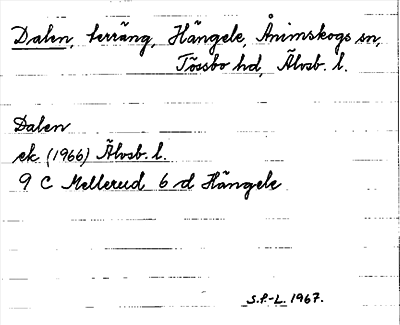 Dalen, terräng, Hängele, Ånimskogs sn,
Tössbo hd, Älvsb. l.
Dalen
ek. (1966) Älvsb. l.
9 C Mellerud 6 d Hängele
S.P.-L. 1967.